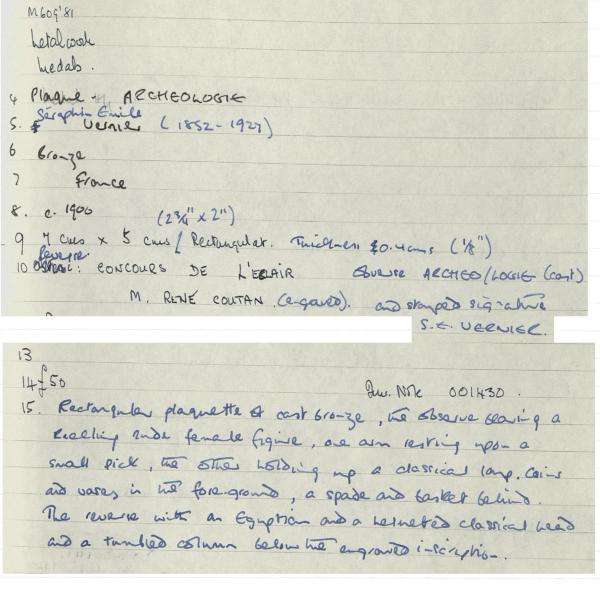 M609'81
Metalwork
Medals.
4 Plaque - ARCHEOLOGIE
Séraphin Emile
5. Vernier (1852-1927)
6 Bronze
7 France
8. c. 1900 (2¾" x 2")
9 7 cms x 5 cms / Rectangular. Thickness 0.4cms (⅛")
Reverse
10 : CONCOURS DE L'ECLAIR obverse ARCHEO/LOGIE (cast)
M. RENÉ COUTAN (engraved). and stamped signature
S.E. VERNIER.
13
14 £50 Inv. Note 001430.
15. Rectangular plaquette of cast bronze, the observe bearing a
kneeling nude female figure, one arm resting upon a
small pick, the other holding up a classical lamp. Coins
and vases in the foreground, a spade and basket behind.
The reverse with an Egyptian and a helmeted classical head
and a tumbled column below the engraved inscription.